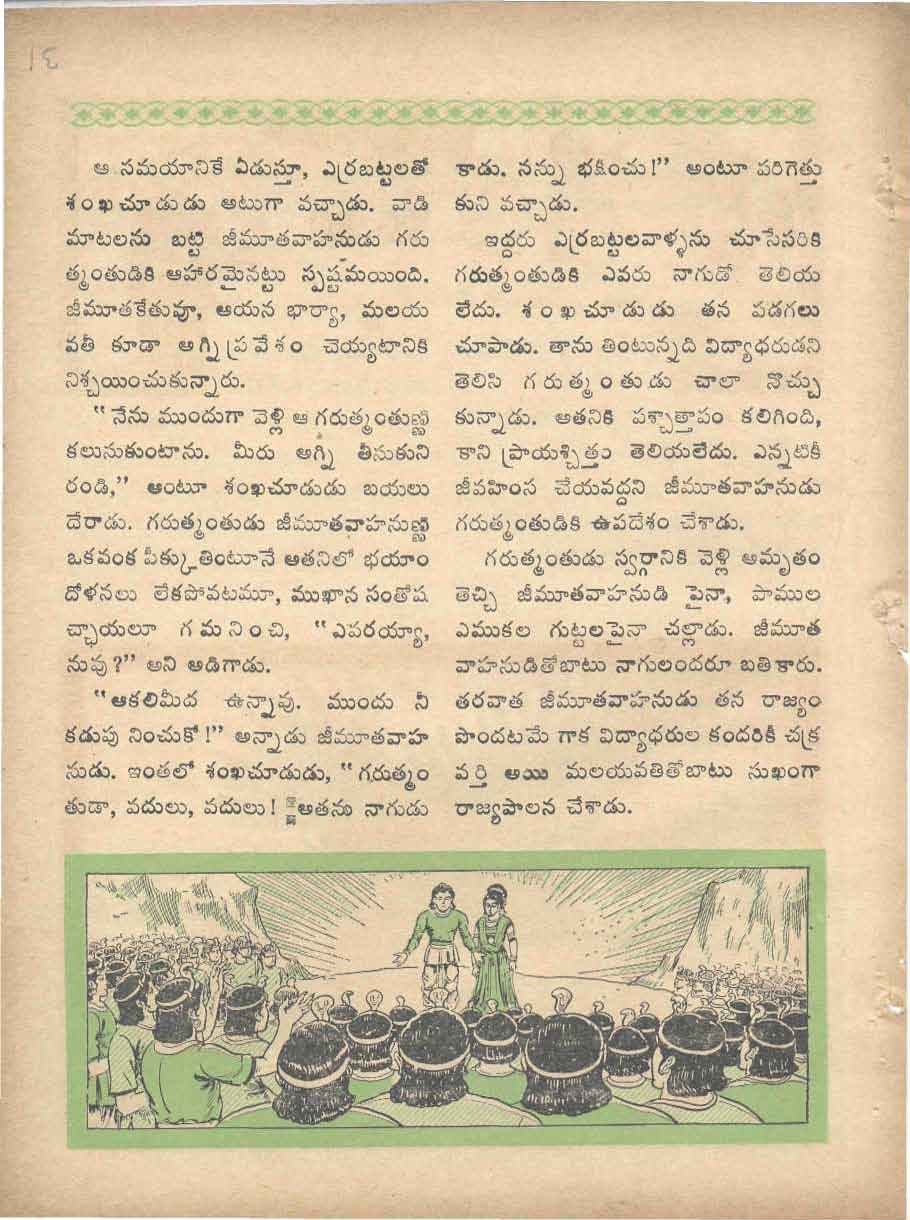 ఆ సమయానికే ఏడుస్తూ, ఎర్రబట్టలతో
శంఖచూడుడు అటుగా వచ్చాడు. వాడి
మాటలను బట్టి జీమూతవాహనుడు గరు
త్మంతుడికి ఆహారమైనట్టు స్పష్టమయింది.
జీమూతకేతువూ, ఆయన భార్యా, మలయ
వతీ కూడా అగ్నిప్రవేశం చెయ్యటానికి
నిశ్చయించుకున్నారు.
“నేను ముందుగా వెళ్లి ఆ గరుత్మంతుణ్ణి
కలుసుకుంటాను. మీరు అగ్ని తీసుకుని
రండి,” అంటూ శంఖచూడుడు బయలు
దేరాడు. గరుత్మంతుడు జీమూతవాహనుణ్ణి
ఒకవంక పీక్కుతింటూనే అతనిలో భయాం
దోళనలు లేకపోవటమూ, ముఖాన సంతోష
చ్ఛాయలూ గమనించి, “ఎవరయ్యా,
నువు?” అని అడిగాడు.
“ఆకలిమీద ఉన్నావు. ముందు నీ
కడుపు నించుకో!” అన్నాడు జీమూతవాహ
నుడు. ఇంతలో శంఖచూడుడు, “గరుత్మం
తుడా, వదులు, వదులు! అతను నాగుడు
కాడు. నన్ను భక్షించు!” అంటూ పరిగెత్తు
కుని వచ్చాడు.
ఇద్దరు ఎర్రబట్టలవాళ్ళను చూసేసరికి
గరుత్మంతుడికి ఎవరు నాగుడో తెలియ
లేదు. శంఖచూడుడు తన పడగలు
చూపాడు. తాను తింటున్నది విద్యాధరుడని
తెలిసి గరుత్మంతుడు చాలా నొచ్చు
కున్నాడు. అతనికి పశ్చాత్తాపం కలిగింది,
కాని ప్రాయశ్చిత్తం తెలియలేదు. ఎన్నటికీ
జీవహింస చేయవద్దని జీమూతవాహనుడు
గరుత్మంతుడికి ఉపదేశం చేశాడు.
గరుత్మంతుడు స్వర్గానికి వెళ్లి అమృతం
తెచ్చి జీమూతవాహనుడి పైనా, పాముల
ఎముకల గుట్టలపైనా చల్లాడు. జీమూత
వాహనుడితోబాటు నాగులందరూ బతికారు.
తరవాత జీమూతవాహనుడు తన రాజ్యం
పొందటమే గాక విద్యాధరుల కందరికీ చక్ర
వర్తి అయి మలయవతితోబాటు సుఖంగా
రాజ్యపాలన చేశాడు.